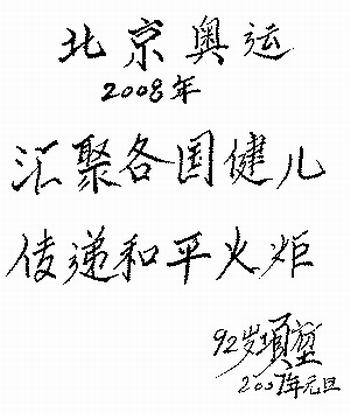 北京奥运
2008年
汇聚各国健儿
传递和平火炬
92岁項堃
2007年元旦